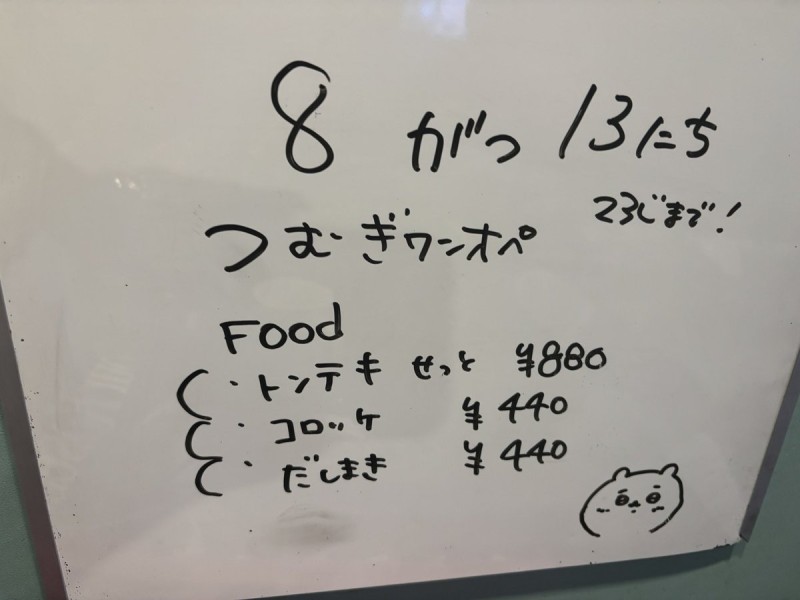 8がつ13にち
23じまで!
つむぎワンオペ
Food
・トンテキ せっと ¥880
・コロッケ ¥440
・だしまき ¥440